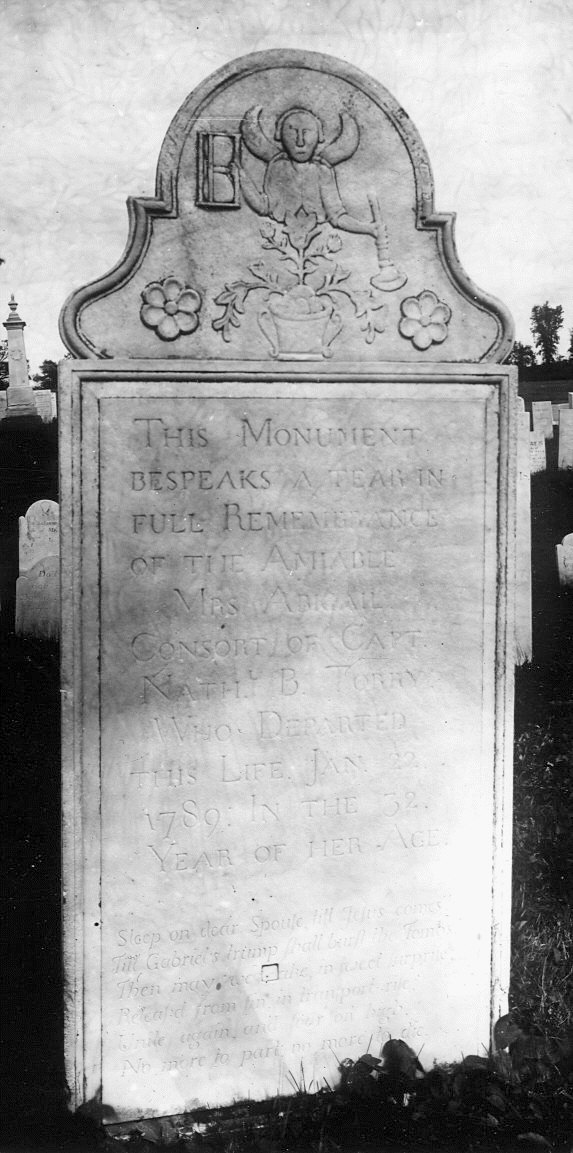 B
THIS MONUMENT
BESPEAKS A TEAR IN
FULL REMEMBRANCE
OF THE AMIABLE
MRS ABIGAIL
CONSORT OF CAPT.
NATHL B. TORRY
WHO DEPARTED
THIS LIFE JAN. 22.
1789 IN THE 32.
YEAR OF HER AGE.
Sleep on dear Spouse, till Jesus comes
Till Gabriel's trump shall burst the Tombs
Then may we wake, in sweet surprise,
Releas'd from sin in transport rise,
Unite again, and soar on high
No more to part, no more to die.